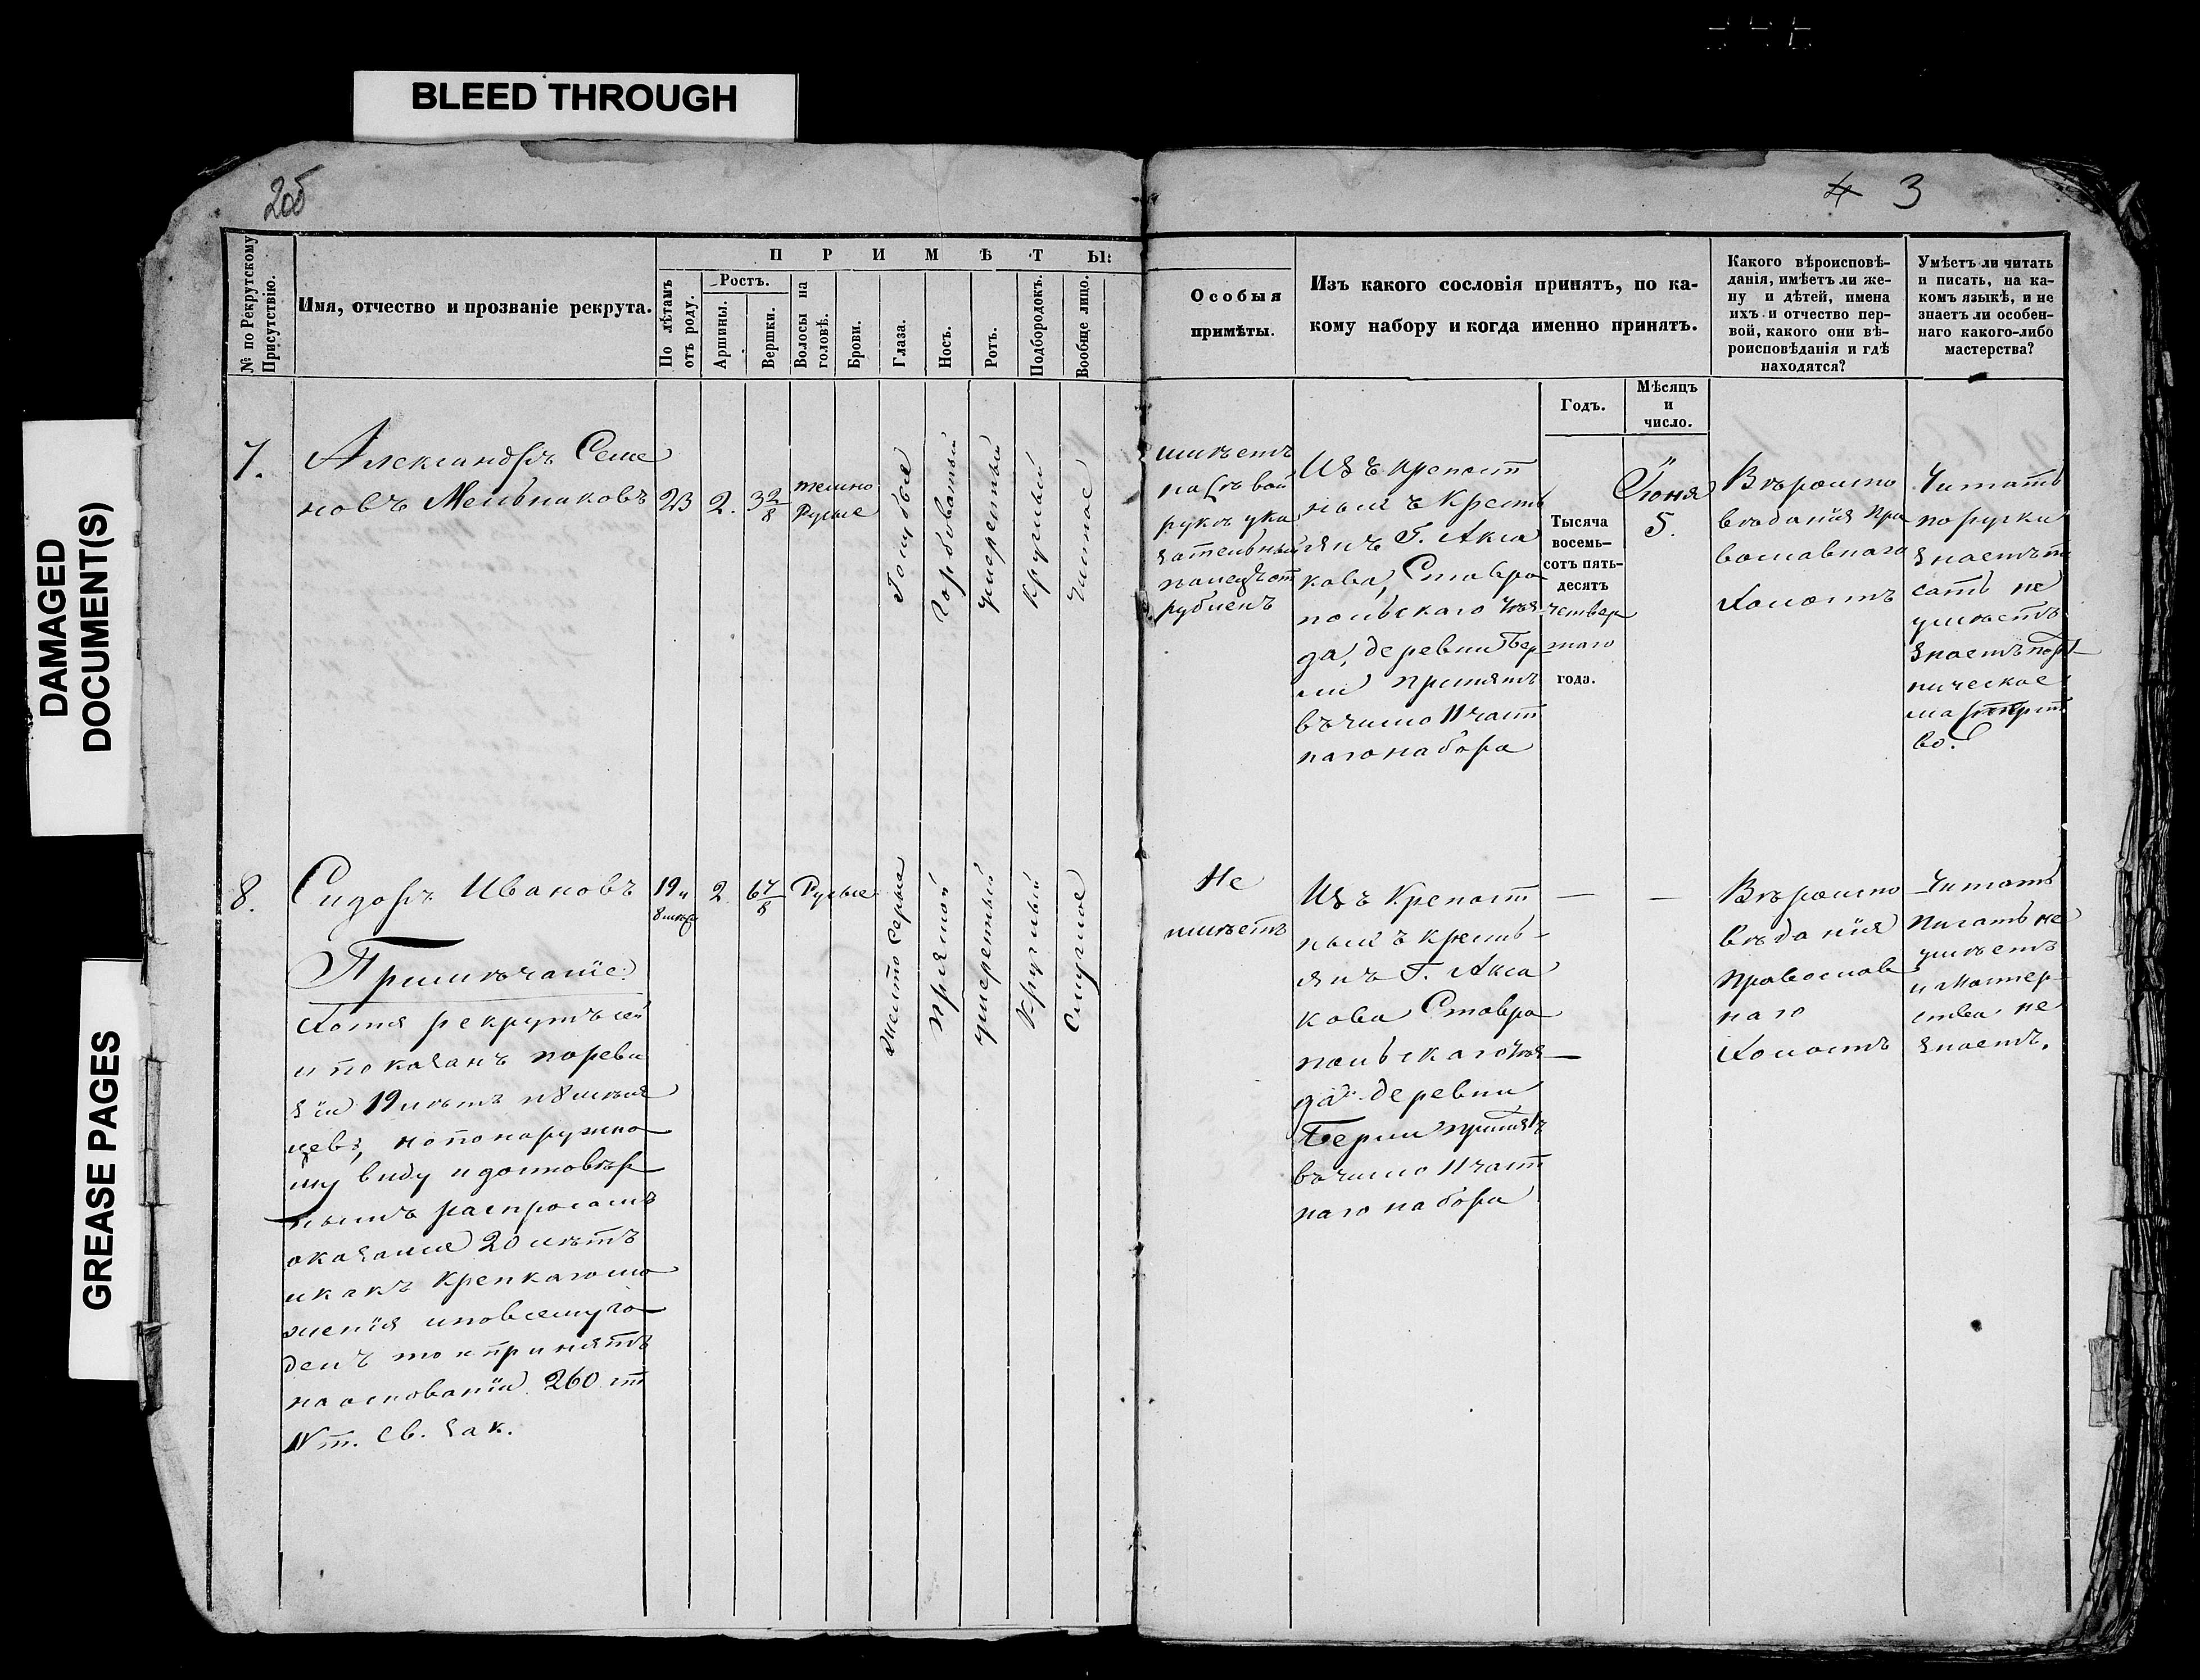 BLEED THROUGH
DAMAGED
DOCUMENT(S)
GREASE PAGES
2об
3
№ по Рекрутскому
Присутствію.
Имя, отчество и прозваніе рекрута.
ПРИМѢТЫ:
По лѣтамъ
отъ роду.
Ростъ.
Аршины.
Вершки.
Волосы на
головѣ.
Брови.
Глаза.
Носъ.
Ротъ.
Подбородокъ.
Вообще лицо.
Особыя
примѣты.
Изъ какого сословія принятъ, по ка-
кому набору и когда именно принятъ.
Годъ.
Мѣсяцъ
и
число.
Какого вѣроисповѣ-
данія, имѣетъ ли же-
ну и дѣтей, имена
ихъ и отчество пер-
вой, какого они вѣ-
роисповѣданія и гдѣ
находятся?
Умѣетъ ли читать
и писать, на ка-
комъ языкѣ, и не
знаетъ ли особен-
наго какого-либо
мастерства?
7.
Александръ Семе
новъ Мельниковъ
23
2.
3 2/8
темно
Русые
Голубые
Горбоватый
умеретный
круглый
Чистое
имѣетъ
на правой
рукѣ ука
зательный
палецъ от
рубленъ
Изъ крепост
ныхъ кресть
янъ Г. Акса
кова, Ставро
польскаго Уѣз
да, деревни
принятъ
въ число 11 част
наго набора
Тысяча
восемь-
сотъ пять-
десятъ
четвер
таго
года.
Іюня
5.
Вѣроиспо
вѣданія Пра
вославнаго
Холостъ
Читать
по русски
знаетъ пи
сать не
умѣетъ
знаетъ
во.
8.
Сидоръ Ивановъ
19 и
8 мѣся
2
6 4/8
Русые
Желто серые
Прямой
умеретный
Круглый
Смуглое
Не
имѣетъ
Изъ Крепост
ныхъ кресть-
янъ Г. Акса
кова Ставро
польскаго Уѣз
да деревни
принятъ
въ число 11 част
наго набора
Вѣроиспо
вѣданія
Православ
наго
Холостъ
Читать
Писать не
умѣетъ
и мастер
ства не
знаетъ.
Примѣчаніе:
Хотя рекрутъ сей
и показанъ по реви
зіи 19 лѣтъ и 8 мѣся
цевъ, но по наружно
му виду и достовѣр
нымъ распросамъ
оказался 20 лѣтъ
и какъ крепкаго сло
женія и по всему го
денъ то и принятъ
на основаніи 260 ст
IV т. Св. Зак.